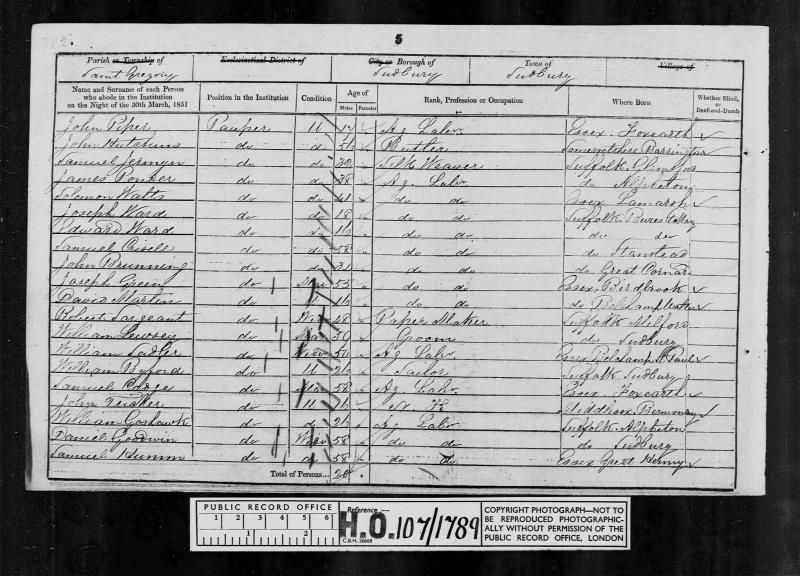 5
Parish or Township of Ecclesiastical District of City or Borough of Town of Village of
Saint Gregory Sudbury Sudbury
Name and Surname of each Person who abode in the Institution on the Night of the 30th March, 1851 Position in the Institution Condition Age of Males Females Rank, Profession or Occupation Where Born Whether Blind, or Deaf-and-Dumb
John Piper Pauper U Ag Labr Essex Foxearth
John Hutchins do do Butler Somersetshire Barrington
Samuel Jermyn do do Silk Weaver Suffolk
James Ponder do do 38 Ag Labr do Alpheton
Solomon Watts do do 41 do do Essex Lamarsh
Joseph Ward do do 18 do do Suffolk Bures St Mary
Edward Ward do do 16 do do do do
Samuel do do 58 do do do Stanstead
John Brunning do do do do do Great Cornard
Joseph Green do Mar 55 do do Essex Birdbrook
David Martin do U 16 do do do Belchamp
Robert Sargeant do 48 Paper Maker Suffolk Melford
William do Mar 50 Groom do Sudbury
William Sadler do Widr 50 Ag Labr Essex Belchamp St Paul
William Byford do U 20 Tailor Suffolk Sudbury
Samuel do Mar 58 Ag Labr Essex Foxearth
John do U 76 Middlesex
William Goshawk do do Ag Labr Suffolk Alpheton
Daniel Goodwin do Widr 58 do do do Sudbury
Samuel Humm do do 58 do do Essex Great Henny
Total of Persons... 20
PUBLIC RECORD OFFICE
1 2 3 4 5 6
Reference :-
H.O. 107/1789
C.B.H. 26668
COPYRIGHT PHOTOGRAPH—NOT TO
BE REPRODUCED PHOTOGRAPHIC-
ALLY WITHOUT PERMISSION OF THE
PUBLIC RECORD OFFICE, LONDON